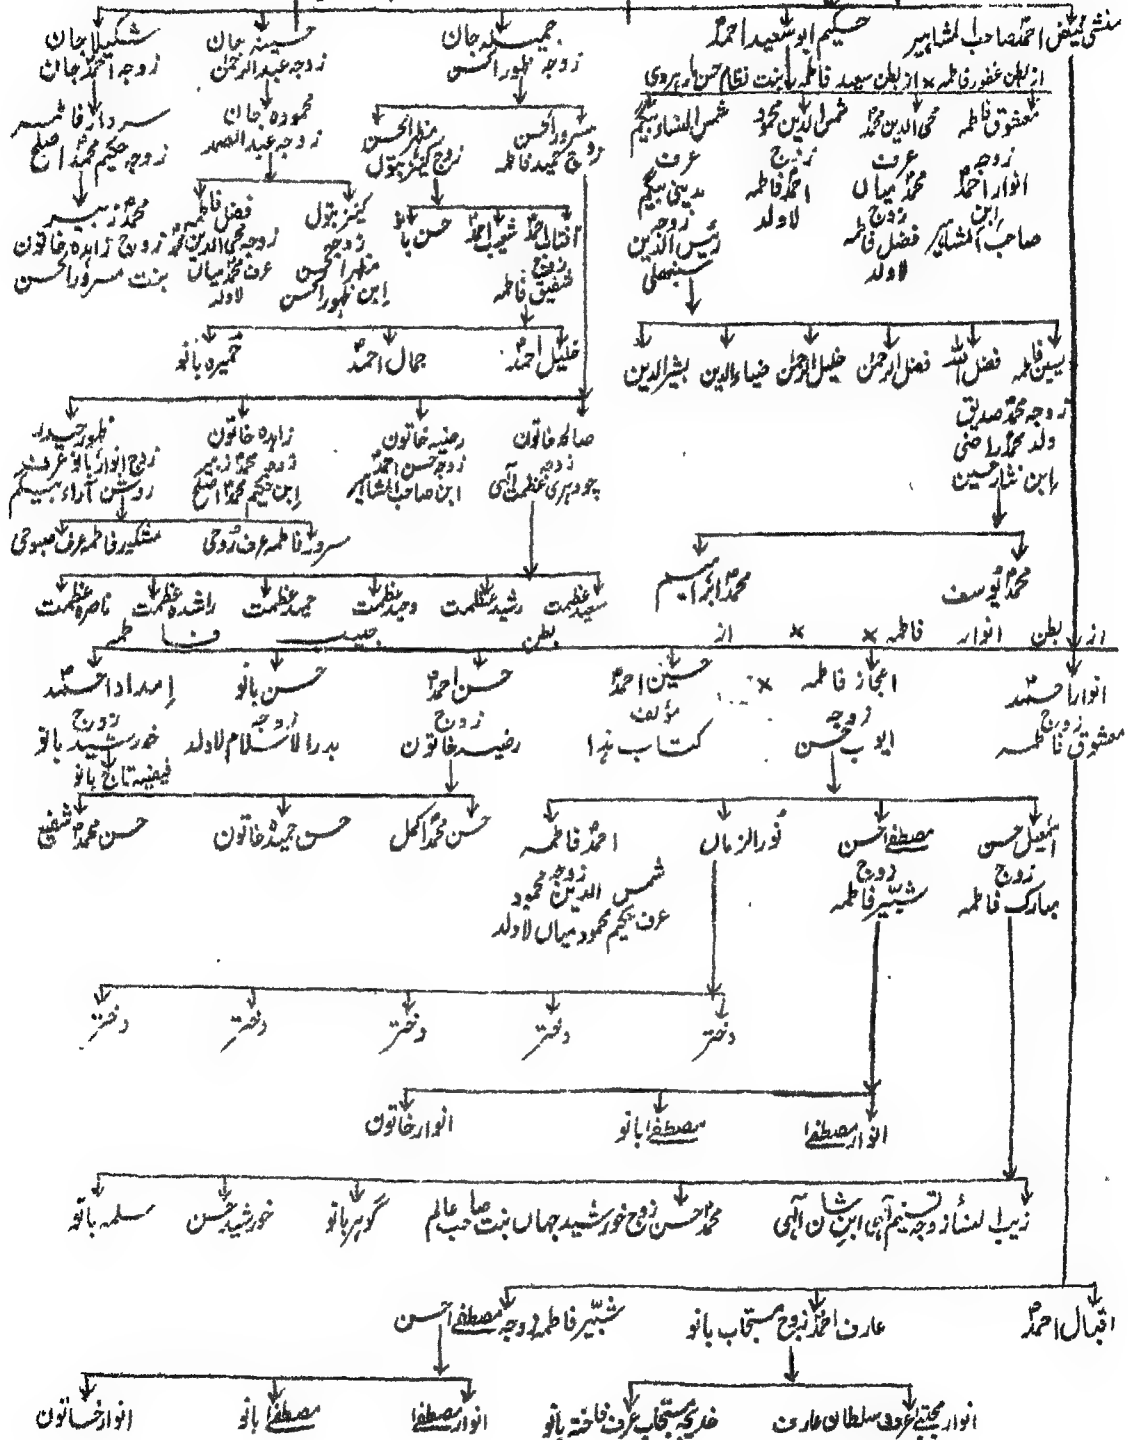 منشی فیض احمدؐ صاحب المشاہیر
حکیم ابو سعید احمدؐ
جمیلہ جان
زوجہ ظہور الحسن
حسینہ جان
زوجہ عبدالرحمٰن
شکیلا جان
زوجہ احمدؐ جان
از بطن غفور فاطمہ × از بطن سعید فاطمہ بنت نظام حسن
معشوق فاطمہ
زوجہ
انوار احمدؐ
ابن
صاحب المشاہیر
محی الدین محمدؐ
عرف
محمدؐ میاں
زوج
فضل فاطمہ
لاولد
شمس الدین محمود
زوج
احمدؐ فاطمہ
لاولد
شمس النساء بیگم
عرف
بدینی بیگم
زوجہ
رئیس الدین
سنبھلی
سرور الحسن
زوج حمید فاطمہ
مظہر الحسن
زوج کنیز بتول
محمودہ جان
زوجہ عبد الصمد
سردار فاطمہ
زوجہ حکیم محمدؐ اصلح
آفتاب احمدؐ
زوج
شفیق فاطمہ
شعیب احمدؐ
حسن بانو
کنیز بتول
زوجہ
مظہر الحسن
ابن ظہور الحسن
فضل فاطمہ
زوجہ محی الدین محمدؐ
عرف محمدؐ میاں
لاولد
محمدؐ زبیر
زوج زاہدہ خاتون
بنت سرور الحسن
خلیل احمدؐ
جمال احمدؐ
حمیرہ بانو
یسین فاطمہ
فضل اللہ
فضل الرحمٰن
خلیل الرحمٰن
ضیاء الدین
بشیر الدین
زوجہ محمدؐ صدیق
ولد محمدؐ راضی
ابن نثار حسین
صالحہ خاتون
زوجہ
چودہری عظمت الٰہی
رضیہ خاتون
زوجہ حسن احمدؐ
ابن صاحب المشاہیر
زاہدہ خاتون
زوجہ محمدؐ زبیر
ابن حکیم محمدؐ اصلح
ظہور حیدر
زوج انوار بانو عرف
روشن آراء بیگم
سرور فاطمہ عرف روحی
مشکور فاطمہ عرف صبوحی
محمدؐ یوسف
محمدؐ ابراہیم
سعید عظمت
رشید عظمت
وحید عظمت
حمید عظمت
راشدہ عظمت
ناصرہ عظمت
از بطن انوار فاطمہ × × از بطن حبیب فاطمہ
انوار احمدؐ
زوج
معشوق فاطمہ
اعجاز فاطمہ
زوجہ
ایوب حسن
×
حسین احمدؐ
مؤلف
کتاب ہٰذا
حسن احمدؐ
زوج
رضیہ خاتون
حسن بانو
زوجہ
بدر الاسلام لاولد
امداد احمدؐ
زوج
خورشید بانو
فیضیہ تاج بانو
اسمٰعیل حسن
زوج
مبارک فاطمہ
مصطفےٰ حسن
زوج
شبّیر فاطمہ
نور الزماں
احمدؐ فاطمہ
زوجہ
شمس الدین محمود
عرف حکیم محمود میاں لاولد
حسن محمدؐ اکمل
حسن حمیدہ خاتون
حسن محمدؐ شفیع
دختر
دختر
دختر
دختر
دختر
انوار مصطفےٰ
مصطفےٰ بانو
انوار خاتون
زیب النساء زوجہ تسنیم الٰہی ابن شان الٰہی
محمدؐ احسن زوج خورشید جہاں بنت صاحب عالم
گوہر بانو
خورشید حسن
سلمہ بانو
اقبال احمدؐ
عارف احمدؐ زوج مستجاب بانو
شبّیر فاطمہ زوجہ مصطفےٰ حسن
انوار مجتبےٰ عرف سلطان عارف
خدیجہ مستجاب عرف فاختہ بانو
انوار مصطفےٰ
مصطفےٰ بانو
انوار خاتون